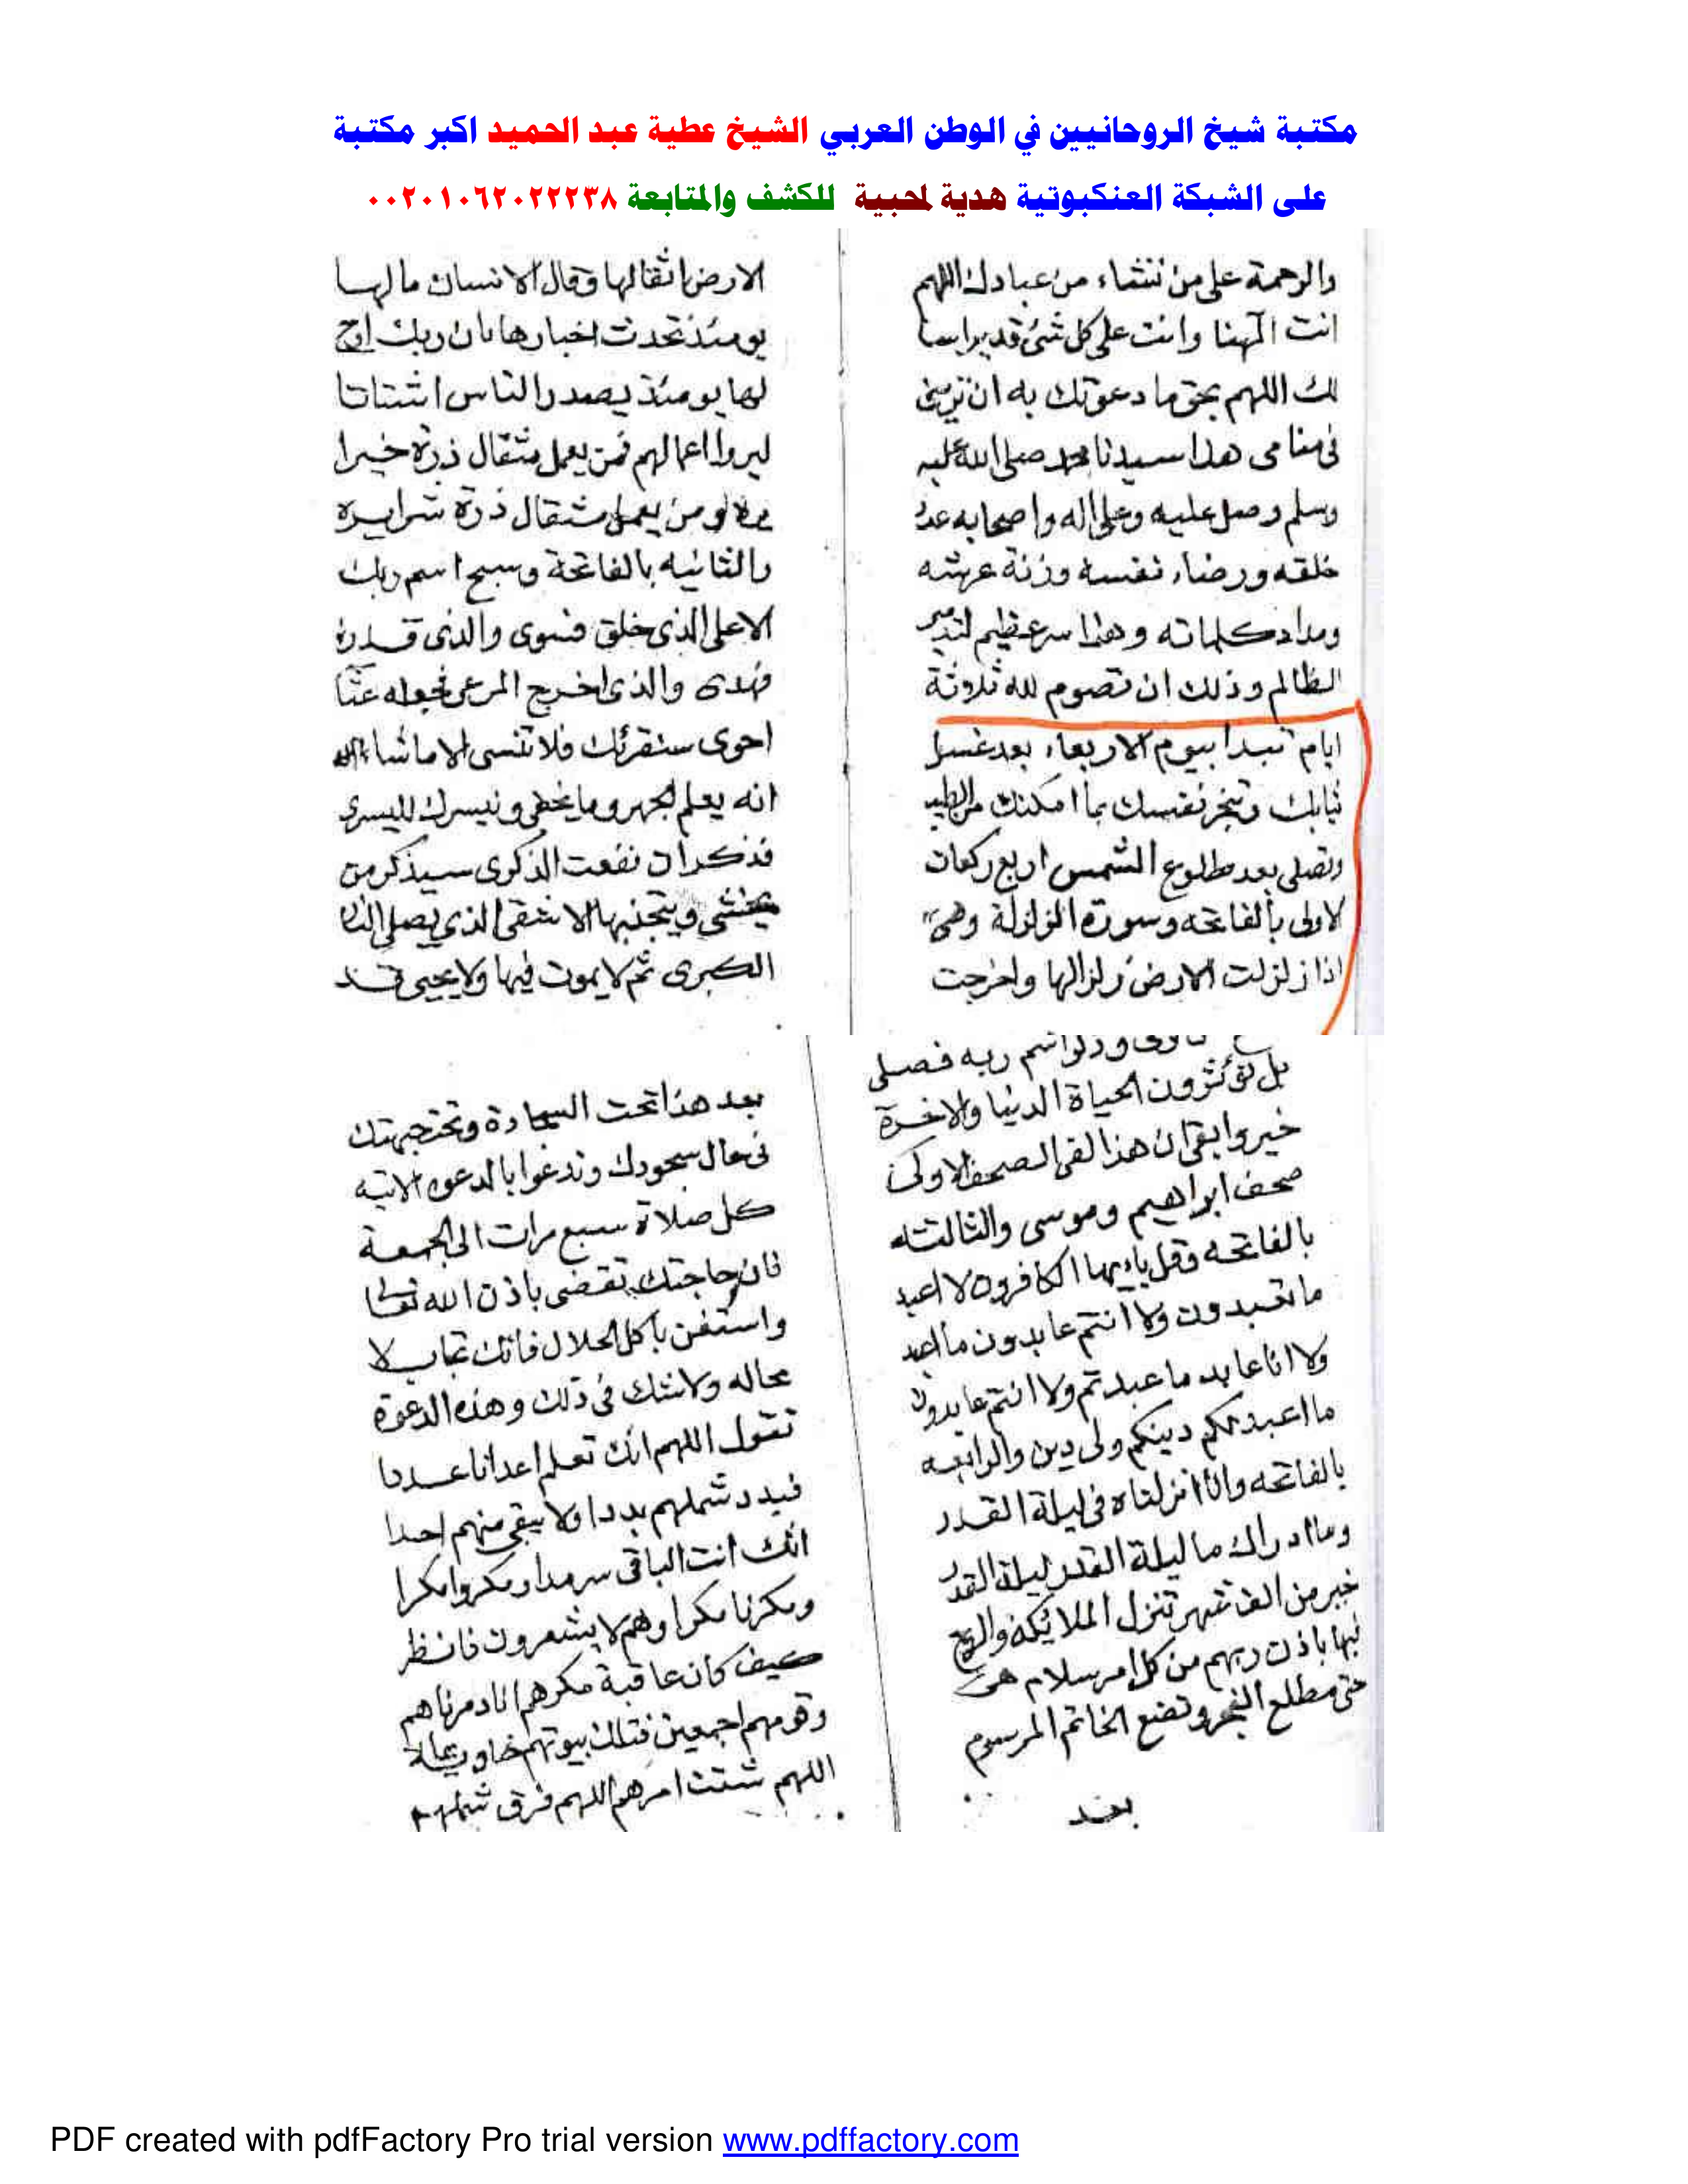 مكتبة شيخ الروحانيين في الوطن العربي الشيخ عطية عبد الحميد اكبر مكتبة
على الشبكة العنكبوتية هدية لمحبية للكشف والمتابعة ٠٠٢٠١٠٦٢٠٢٢٢٣٨
والرحمة على من تشاء من عبادك اللهم
انت الهنا وانت على كل شئ قدير
لك اللهم بحق ما دعوتك به ان تريني
في منامى هذا سيدنا محمد صلى الله عليه
وسلم وصل عليه وعلى اله واصحابه عدد
خلقه ورضاء نفسه وزنة عرشه
ومداد كلماته وهذا سر عظيم لتدمير
الظالم وذلك ان تصوم لله ثلاثة
ايام تبدا بيوم الاربعاء بعد غسل
ثيابك وتبخر نفسك بما امكنك من الطيب
وتصلى بعد طلوع الشمس اربع ركعات
الاولى بالفاتحه وسورة الزلزلة وهى
اذا زلزلت الارض زلزالها واخرجت
الارض اثقالها وقال الانسان مالها
يومئذ تحدث اخبارها بان ربك اوحى
لها يومئذ يصدر الناس اشتاتا
ليروا اعمالهم فمن يعمل مثقال ذرة خيرا
يره ومن يعمل مثقال ذرة شرا يره
والثانيه بالفاتحة وسبح اسم ربك
الاعلى الذى خلق فسوى والذى قدر
فهدى والذى اخرج المرعى فجعله غثا
احوى سنقرئك فلا تنسى الا ماشاء الله
انه يعلم الجهر وما يخفى ونيسرك لليسرى
فذكر ان نفعت الذكرى سيذكر من
يخشى ويتجنبها الاشقى الذي يصلى النار
الكبرى ثم لا يموت فيها ولا يحيى قد
اسم ربه فصلى
بل تؤثرون الحياة الدنيا والاخرة
خير وابقى ان هذا لفى الصحف الاولى
صحف ابراهيم وموسى والثالثه
بالفاتحه وقل ياايها الكافرون لا اعبد
ما تعبدون ولا انتم عابدون ما اعبد
ولا انا عابد ما عبدتم ولا انتم عابدون
ما اعبد لكم دينكم ولى دين والرابعه
بالفاتحه وانا انزلناه فى ليلة القدر
وما ادراك ما ليلة القدر ليلة القدر
خير من الف شهر تنزل الملائكة والروح
فيها باذن ربهم من كل امر سلام هى
حتى مطلع الفجر وتضع الخاتم المرسوم
بعد
بعد هذا تحت السجادة وتحت جبهتك
فى حال سجودك وتدعوا بالدعوه الاتيه
كل صلاة سبع مرات الى الجمعة
فان حاجتك تقضى باذن الله تعالى
واستعن باكل الحلال فانك تجاب لا
محاله ولا شك فى ذلك وهذه الدعوة
تقول اللهم انك تعلم اعدانا عددا
فبدد شملهم بددا ولا يبقى منهم احدا
انك انت الباقى سرمدا ومكروا مكرا
ومكرنا مكرا وهم لا يشعرون فانظر
كيف كان عاقبة مكرهم انا دمرناهم
وقومهم اجمعين فتلك بيوتهم خاوية
اللهم شتت امرهم اللهم فرق شملهم
PDF created with pdfFactory Pro trial version www.pdffactory.com